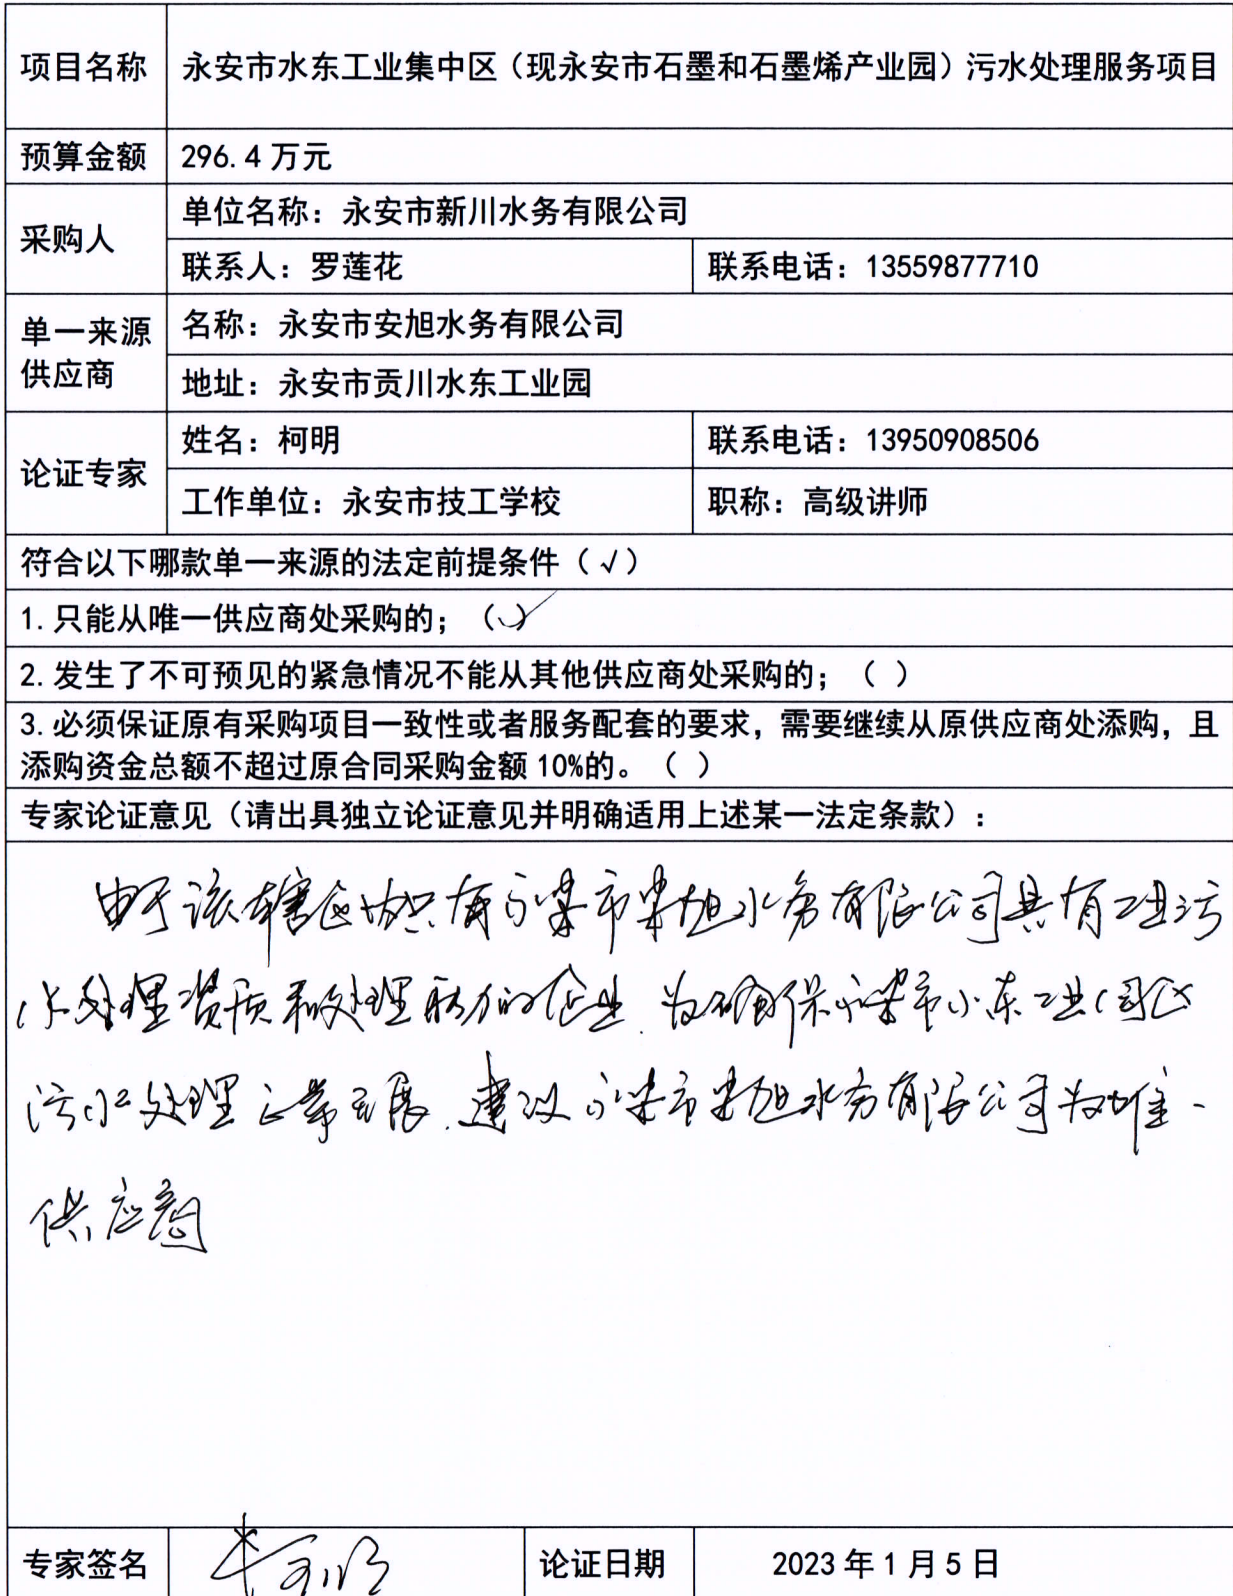 项目名称 永安市水东工业集中区（现永安市石墨和石墨烯产业园）污水处理服务项目
预算金额 296.4万元
采购人
单位名称：永安市新川水务有限公司
联系人：罗莲花 联系电话：13559877710
单一来源
供应商
名称：永安市安旭水务有限公司
地址：永安市贡川水东工业园
论证专家
姓名：柯明 联系电话：13950908506
工作单位：永安市技工学校 职称：高级讲师
符合以下哪款单一来源的法定前提条件（√）
1.只能从唯一供应商处采购的；（✓）
2.发生了不可预见的紧急情况不能从其他供应商处采购的；（ ）
3.必须保证原有采购项目一致性或者服务配套的要求，需要继续从原供应商处添购，且
添购资金总额不超过原合同采购金额10%的。（ ）
专家论证意见（请出具独立论证意见并明确适用上述某一法定条款）：
由于该辖区内只有永安市安旭水务有限公司具有工业污
水处理资质和处理能力的企业.为确保永安市水东工业园区
污水处理正常开展.建议永安市安旭水务有限公司为唯一
供应商
专家签名 柯明 论证日期 2023年1月5日